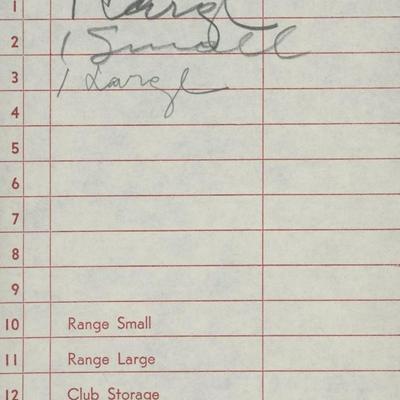 1 1 Large
2 1 Small
3 1 Large
4
5
6
7
8
9
10 Range Small
11 Range Large
12 Club Storage